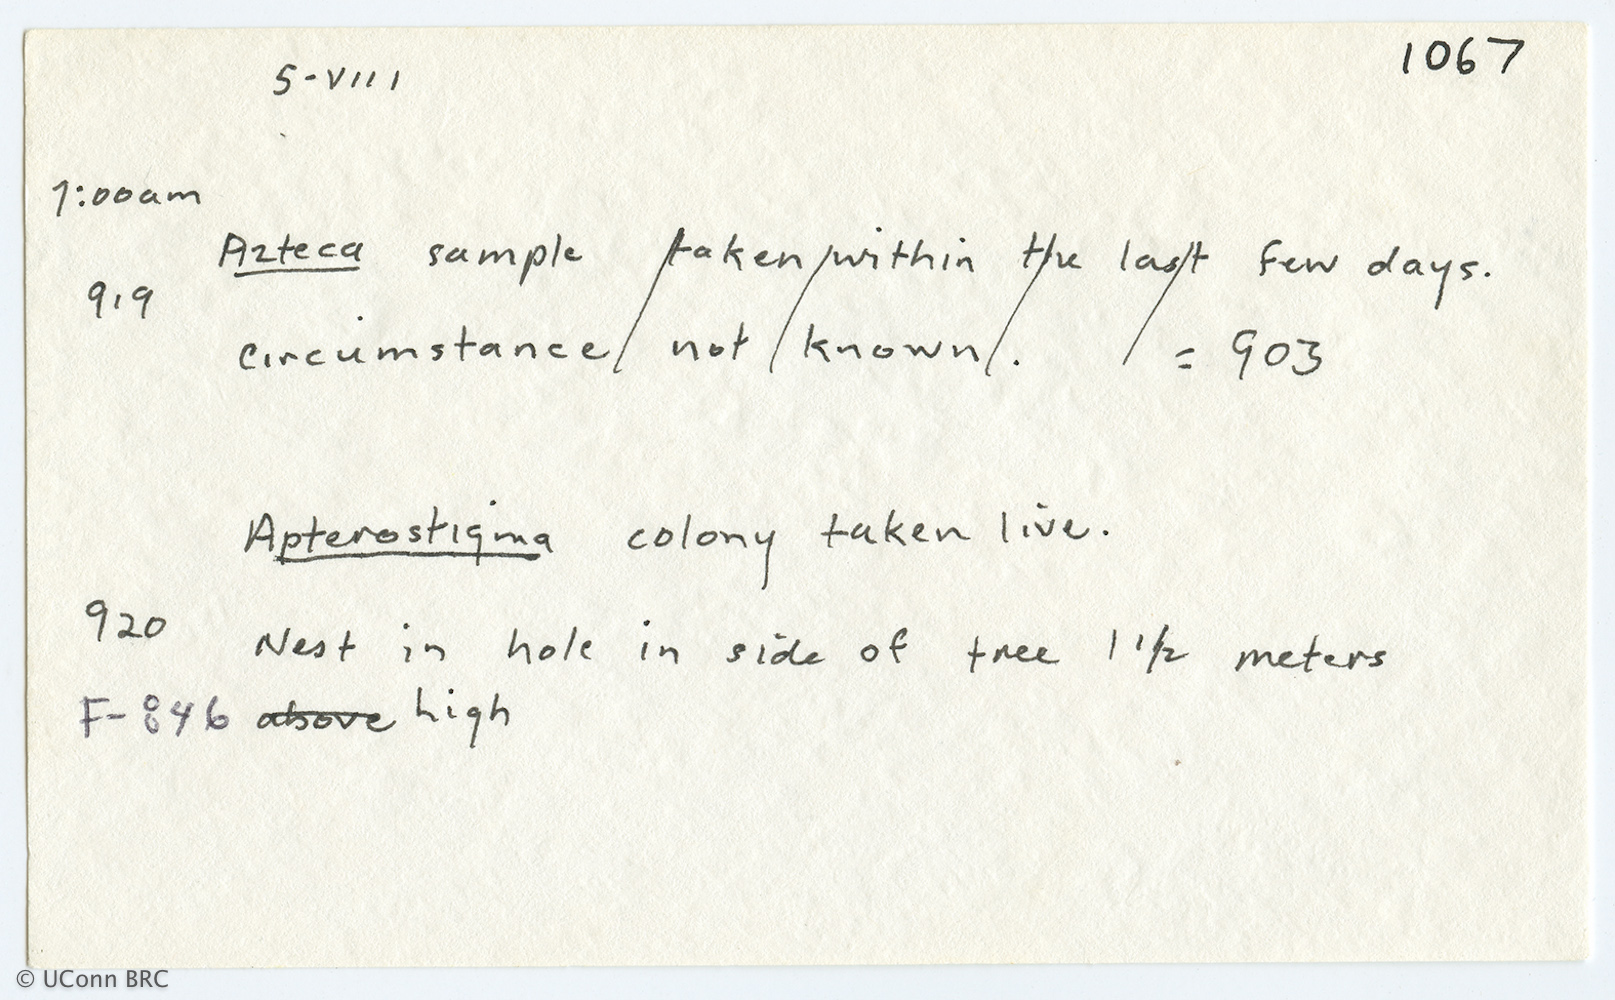 1067
5-VIII
7:00am
Azteca sample taken within the last few days.
919
circumstance not known. = 903
Apterostigma colony taken live.
920 Nest in hole in side of tree 1 1/2 meters
F-846 above high
© UConn BRC